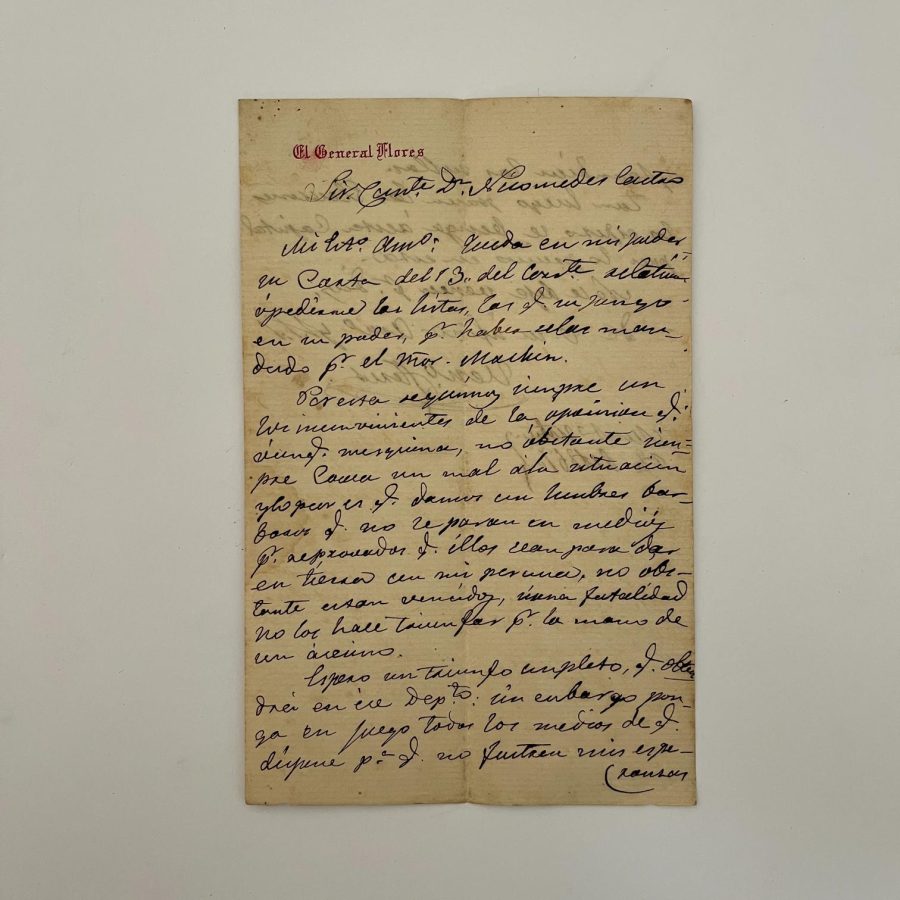 El General Flores
Sr. Comte. Dn. Nicomedes Castro
Mi Eso. Amo. Queda en mi poder
su Carta del 13 del Corrte. relativa
á pedirme las listas, las q. su
en su poder, pr. haberselas man-
dado pr. el Mor. Machin.
Por esta seguimos siempre con
los inconvenientes de la oposicion q.
aunq. mesquina, no obstante siem-
pre causa un mal á la situacion
y lo peor es q. damos con hombres bar-
baros q. no reparan en medios
pr. reprovados q. ellos sean para dar
en tierra con mi persona, no obs-
tante estan vencidos, si una fatalidad
no los hace triunfar pr. la mano de
un asecino.
Espero un triunfo completo, q. obten
drá en ese Depto: sin embargo pon-
ga en juego todos los medios de q.
dispone pa. q. no fustren mis espe-
ransas